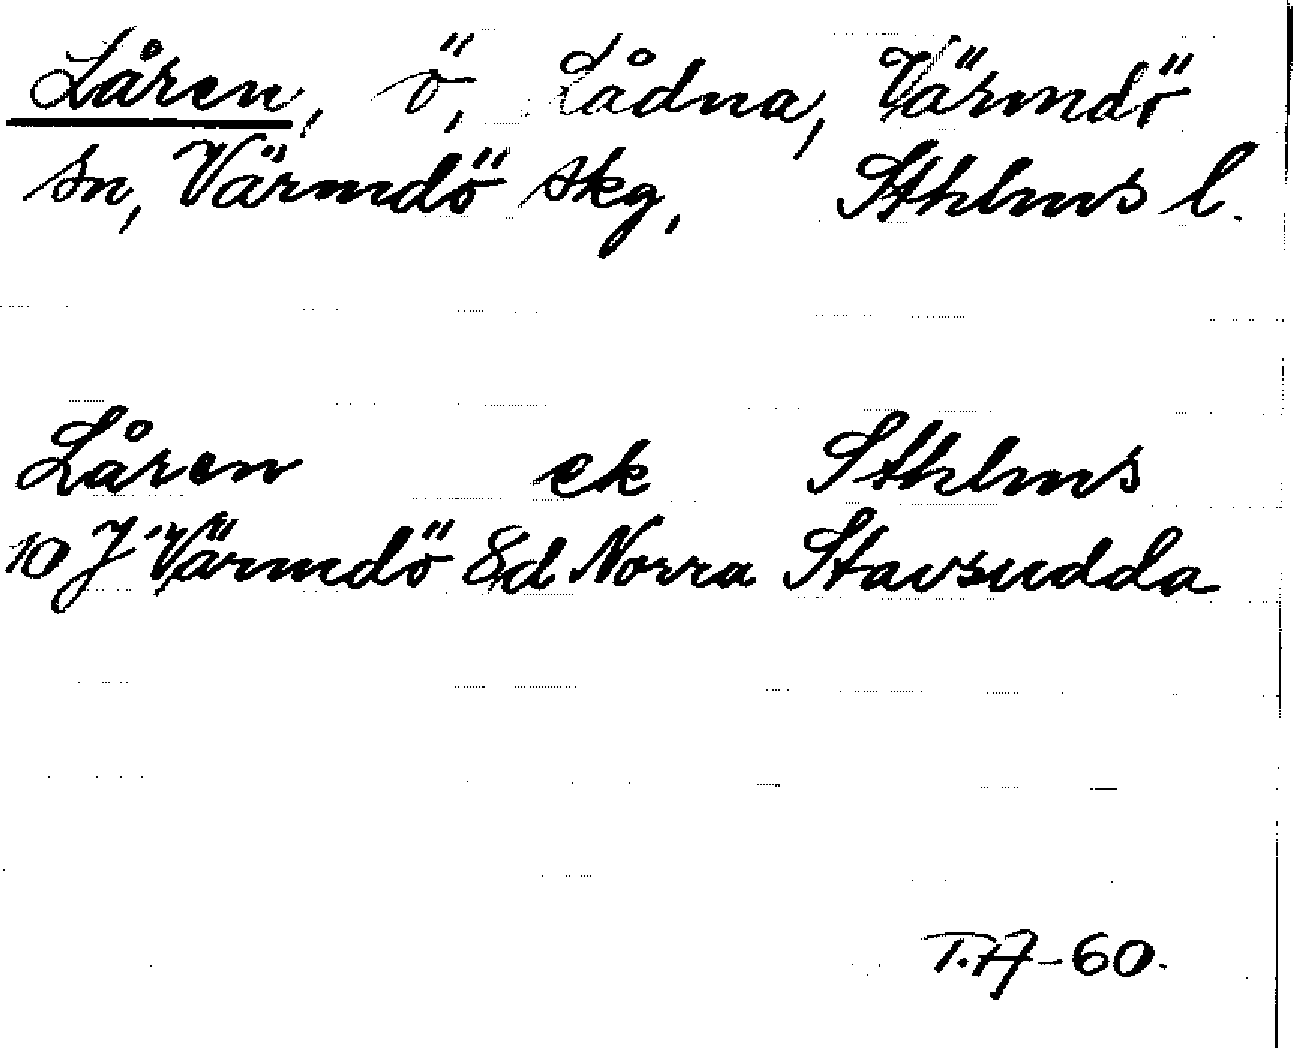 Låren, ö, Lådna, Värmdö
sn, Värmdö skg, Sthlms l.
Låren ek Sthlms
10 J Värmdö 8d Norra Stavsudda
T.A-60.